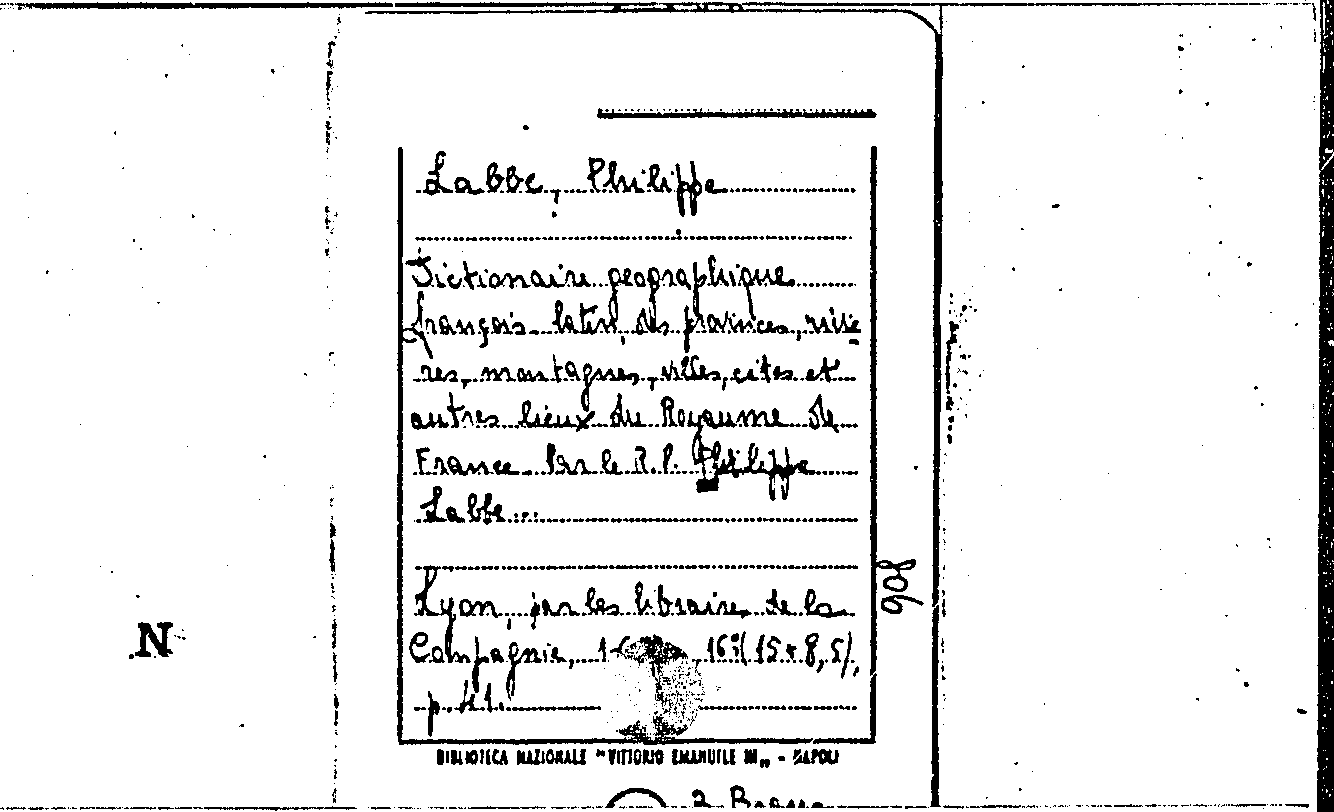 Labbe, Philippe
Dictionaire geographique
français-latin, des provinces, riviè
res, montagnes, villes, cites et
autres lieux du Royaume de
France. Par le R.P. Philippe
Labbe...
Lyon, par les libraires de la
Compagnie, 16° (15 x 8,5),
p.
BIBLIOTECA NAZIONALE "VITTORIO EMANUELE III" - NAPOLI
908
N